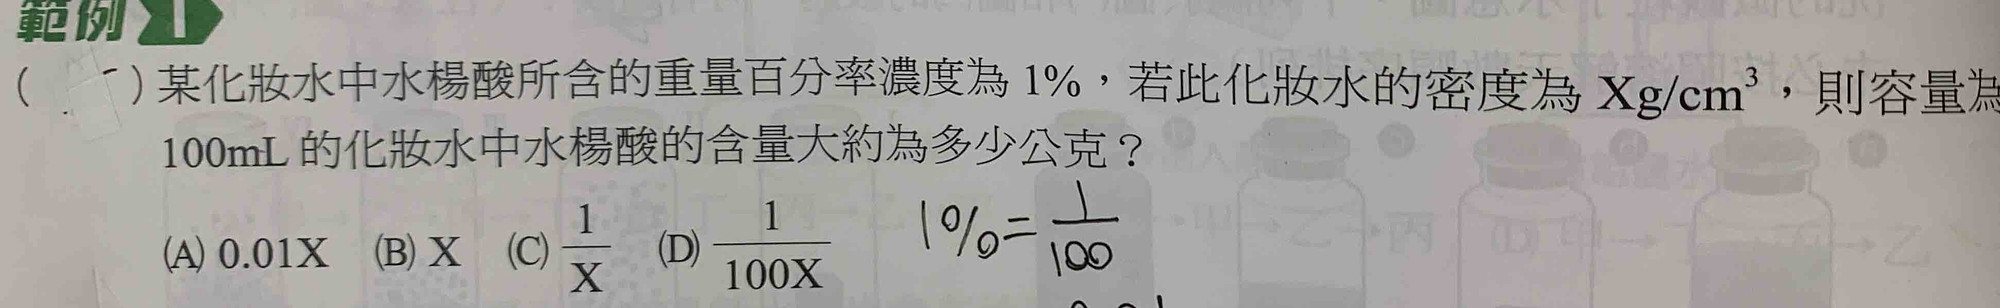 範例 1
( ) 某化妝水中水楊酸所含的重量百分率濃度為 1%，若此化妝水的密度為 Xg/cm³，則容量為
100mL 的化妝水中水楊酸的含量大約為多少公克？
(A) 0.01X (B) X (C) 1/X (D) 1/100X 1%=1/100